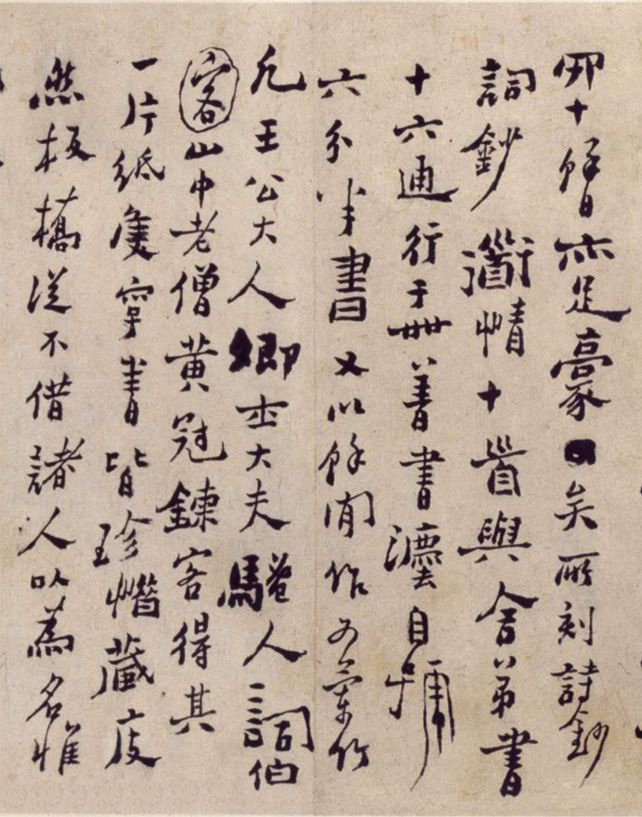 亦足豪矣所刻詩鈔
詞鈔道情十首與舍弟書
十六通行于世善書灋自號
六分半書又以餘閒作為蘭竹
凡王公大人卿士大夫騷人詞伯
客山中老僧黃冠鍊客得其
一片紙隻字書皆珍惜藏庋
然板橋從不借諸人以為名惟